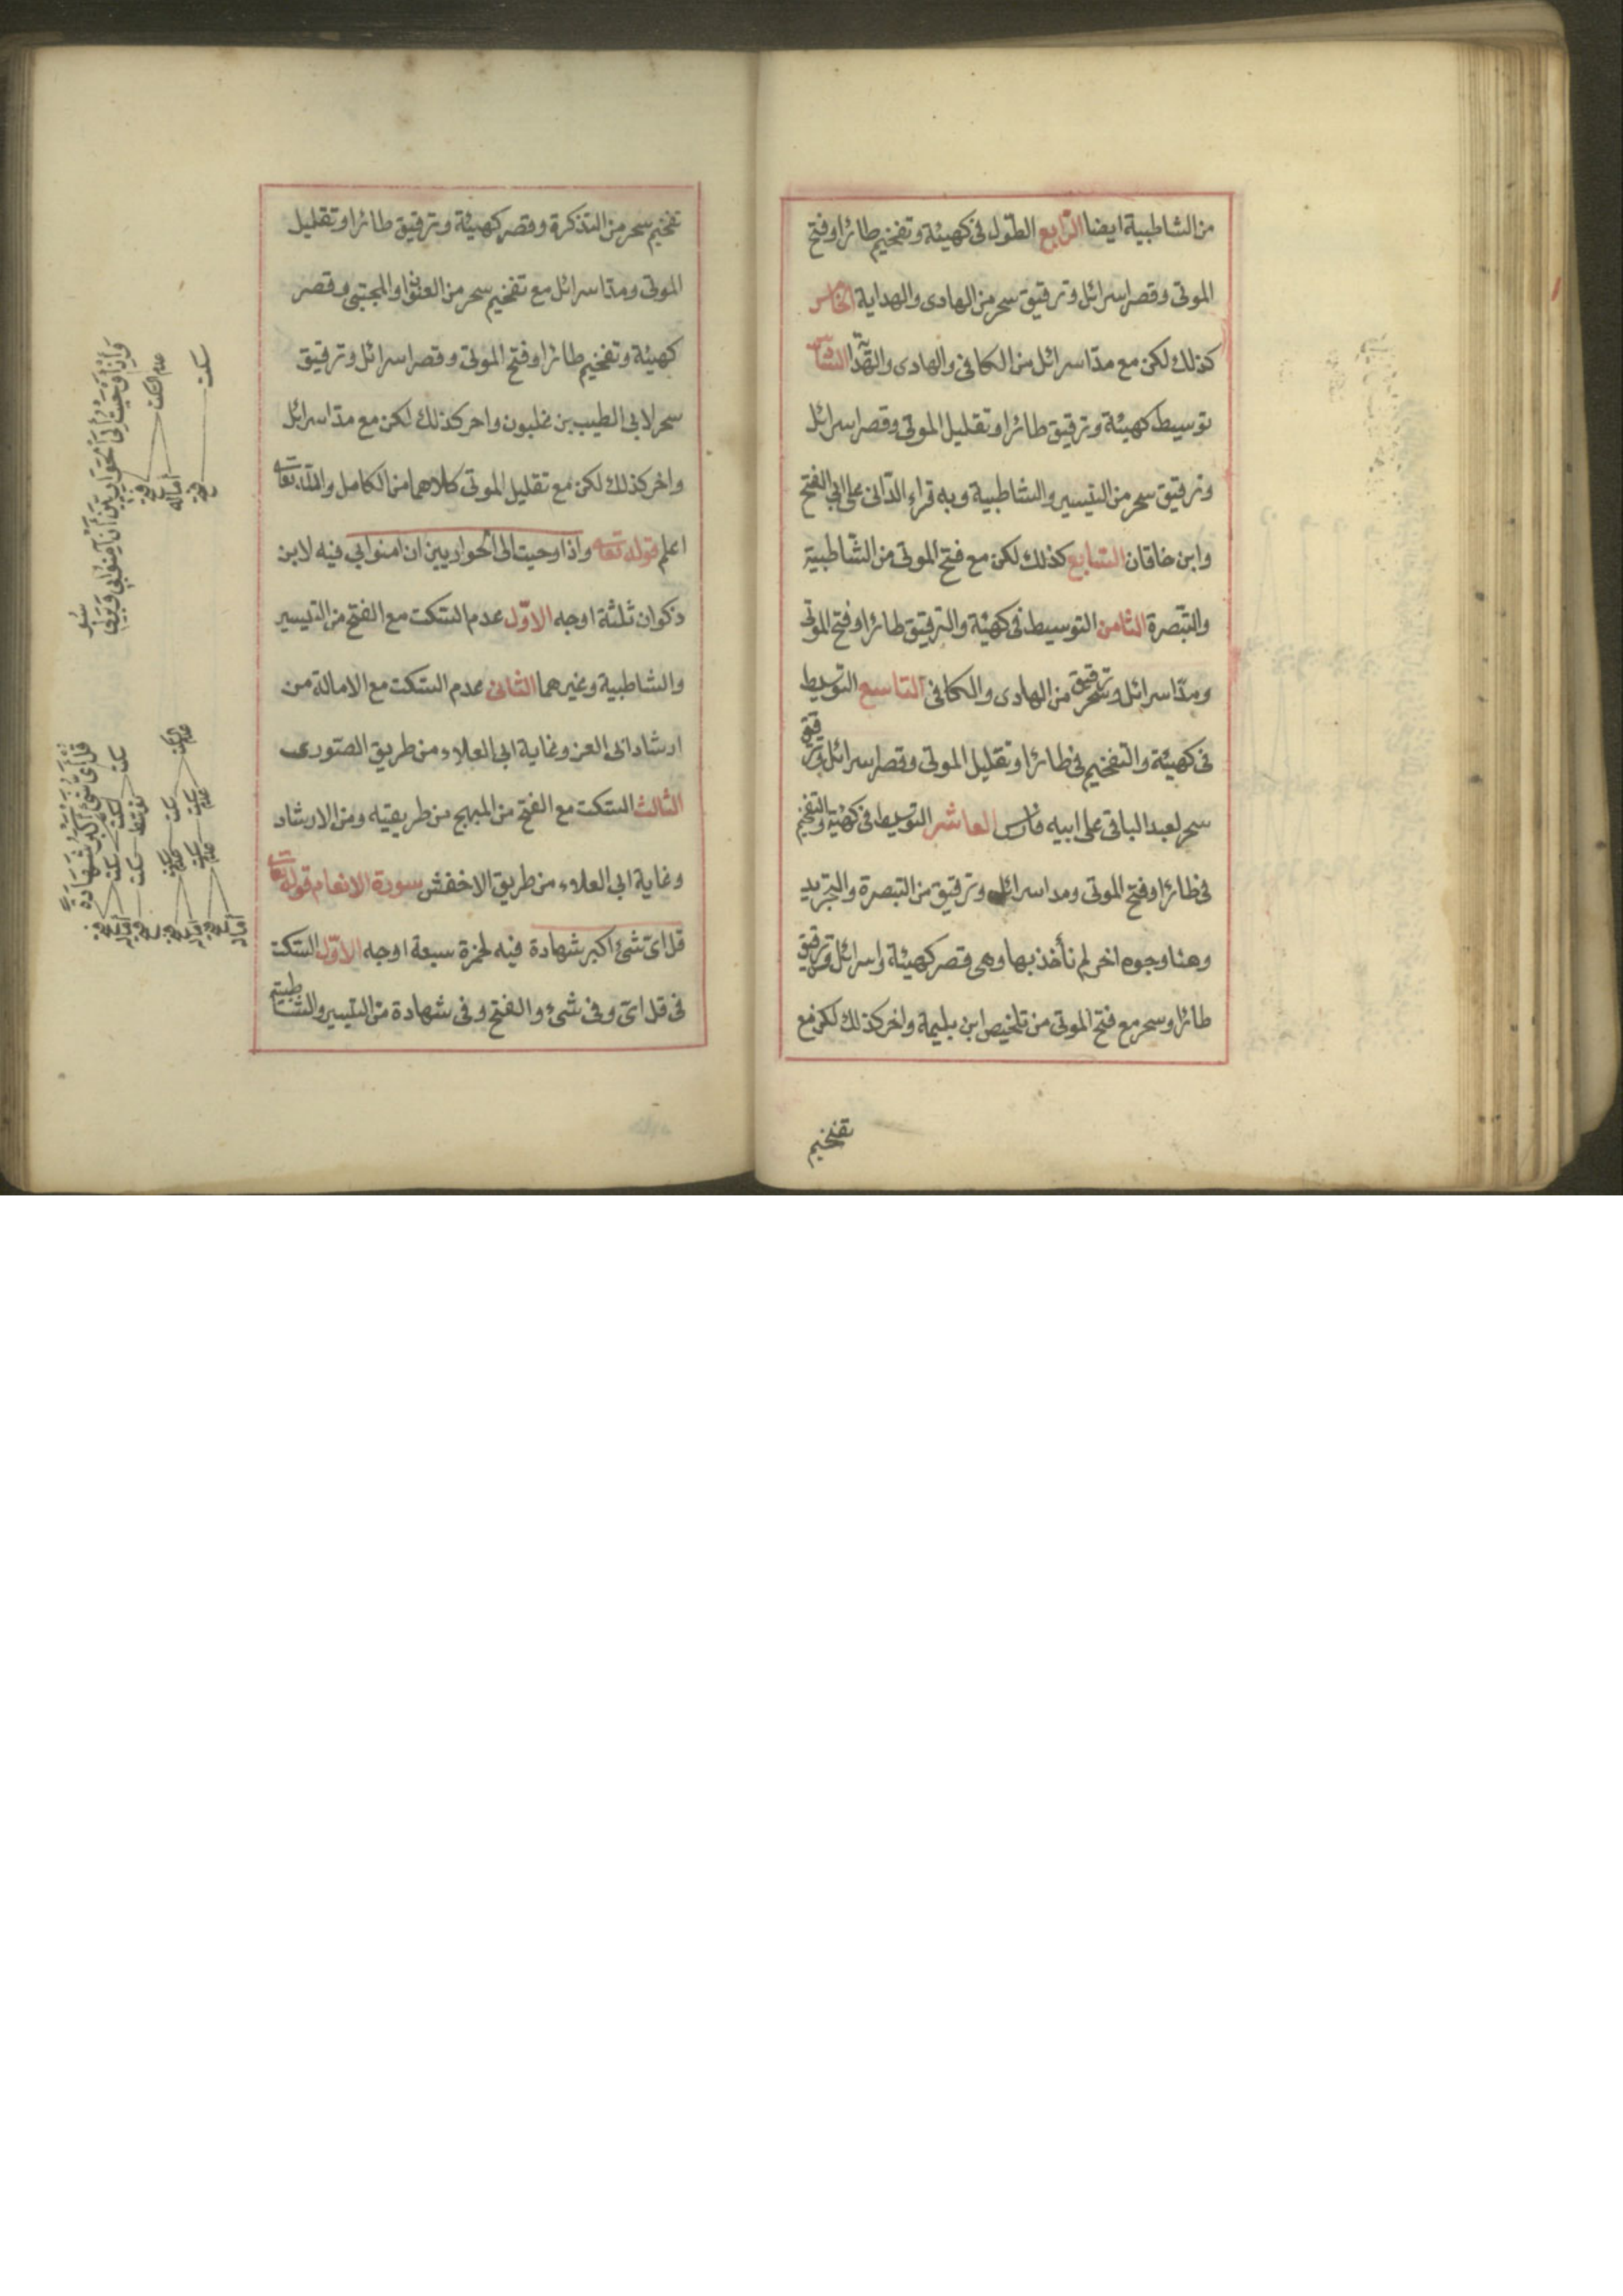 من الشاطبية ايضا الرابع الطول في كهيئة وتفخيم طائرا وفتح
الموتى وقصر اسرائل وترقيق سحر من الهادى والهداية الخامس
كذلك لكن مع مد اسرائل من الكافى والهادى والهداية السادس
توسيط كهيئة وترقيق طائرا وتقليل الموتى وقصر اسرائل
وترقيق سحر من التيسير والشاطبية وبه قراء الدانى على ابي الفتح
وابن خاقان السابع كذلك لكن مع فتح الموتى من الشاطبية
والتبصرة الثامن التوسيط فى كهيئة والترقيق طائرا وفتح الموتى
ومد اسرائل وترقيق سحر من الهادى والكافى التاسع التوسيط
فى كهيئة والتفخيم فى طائرا وتقليل الموتى وقصر اسرائل وترقيق
سحر لعبد الباقى على ابيه فارس العاشر التوسيط فى كهيئة والتفخيم
فى طائرا وفتح الموتى ومد اسرائل وترقيق من التبصرة والتجريد
وهنا وجوه اخر لم نأخذ بها وهى قصر كهيئة واسرائل وترقيق
طائرا وسحر مع فتح الموتى من تلخيص ابن بليمة واخر كذلك لكن مع
تفخيم
تفخيم سحر من التذكرة وقصر كهيئة وترقيق طائرا وتقليل
الموتى ومد اسرائل مع تفخيم سحر من العنوان والمجتبى وقصر
كهيئة وتفخيم طائرا وفتح الموتى وقصر اسرائل وترقيق
سحر لابى الطيب بن غلبون واخر كذلك لكن مع مد اسرائل
واخر كذلك لكن مع تقليل الموتى كلاهما من الكامل والله تعالى
اعلم قوله تعالى واذ اوحيت الى الحواريين ان امنوا بي فيه لابن
ذكوان ثلثة اوجه الاول عدم السكت مع الفتح من التيسير
والشاطبية وغيرهما الثانى عدم السكت مع الامالة من
ارشاد ابى العز وغاية ابى العلاء من طريق الصورى
الثالث السكت مع الفتح من المبهج من طريقيه ومن الارشاد
وغاية ابى العلاء من طريق الاخفش سورة الانعام قوله تعالى
قل اى شئ اكبر شهادة فيه لحمزة سبعة اوجه الاول السكت
فى قل اى وفى شئ والفتح وفى شهادة من التيسير والشاطبية
واذ اوحيت الى الحواريين ان آمنوا بى وبرسولى
عدم السكت
سكت
فتح
امالة
فتح
قل اى شئ اكبر شهادة
سكت
سكت
سكت
عدم السكت
سكت